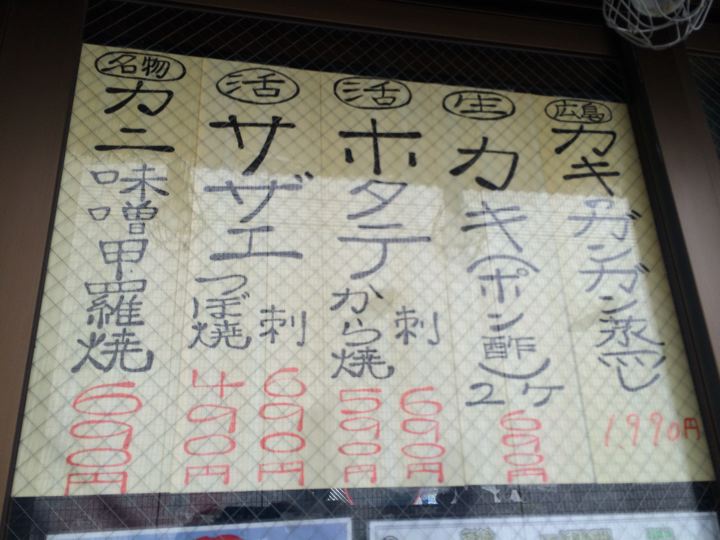 広島
カキのガンガン蒸し
1,990円
生
カキ(ポン酢)2ヶ
690円
活
ホタテ
刺
690円
から焼
590円
活
サザエ
刺
690円
つぼ焼
490円
名物
カニ味噌甲羅焼
690円